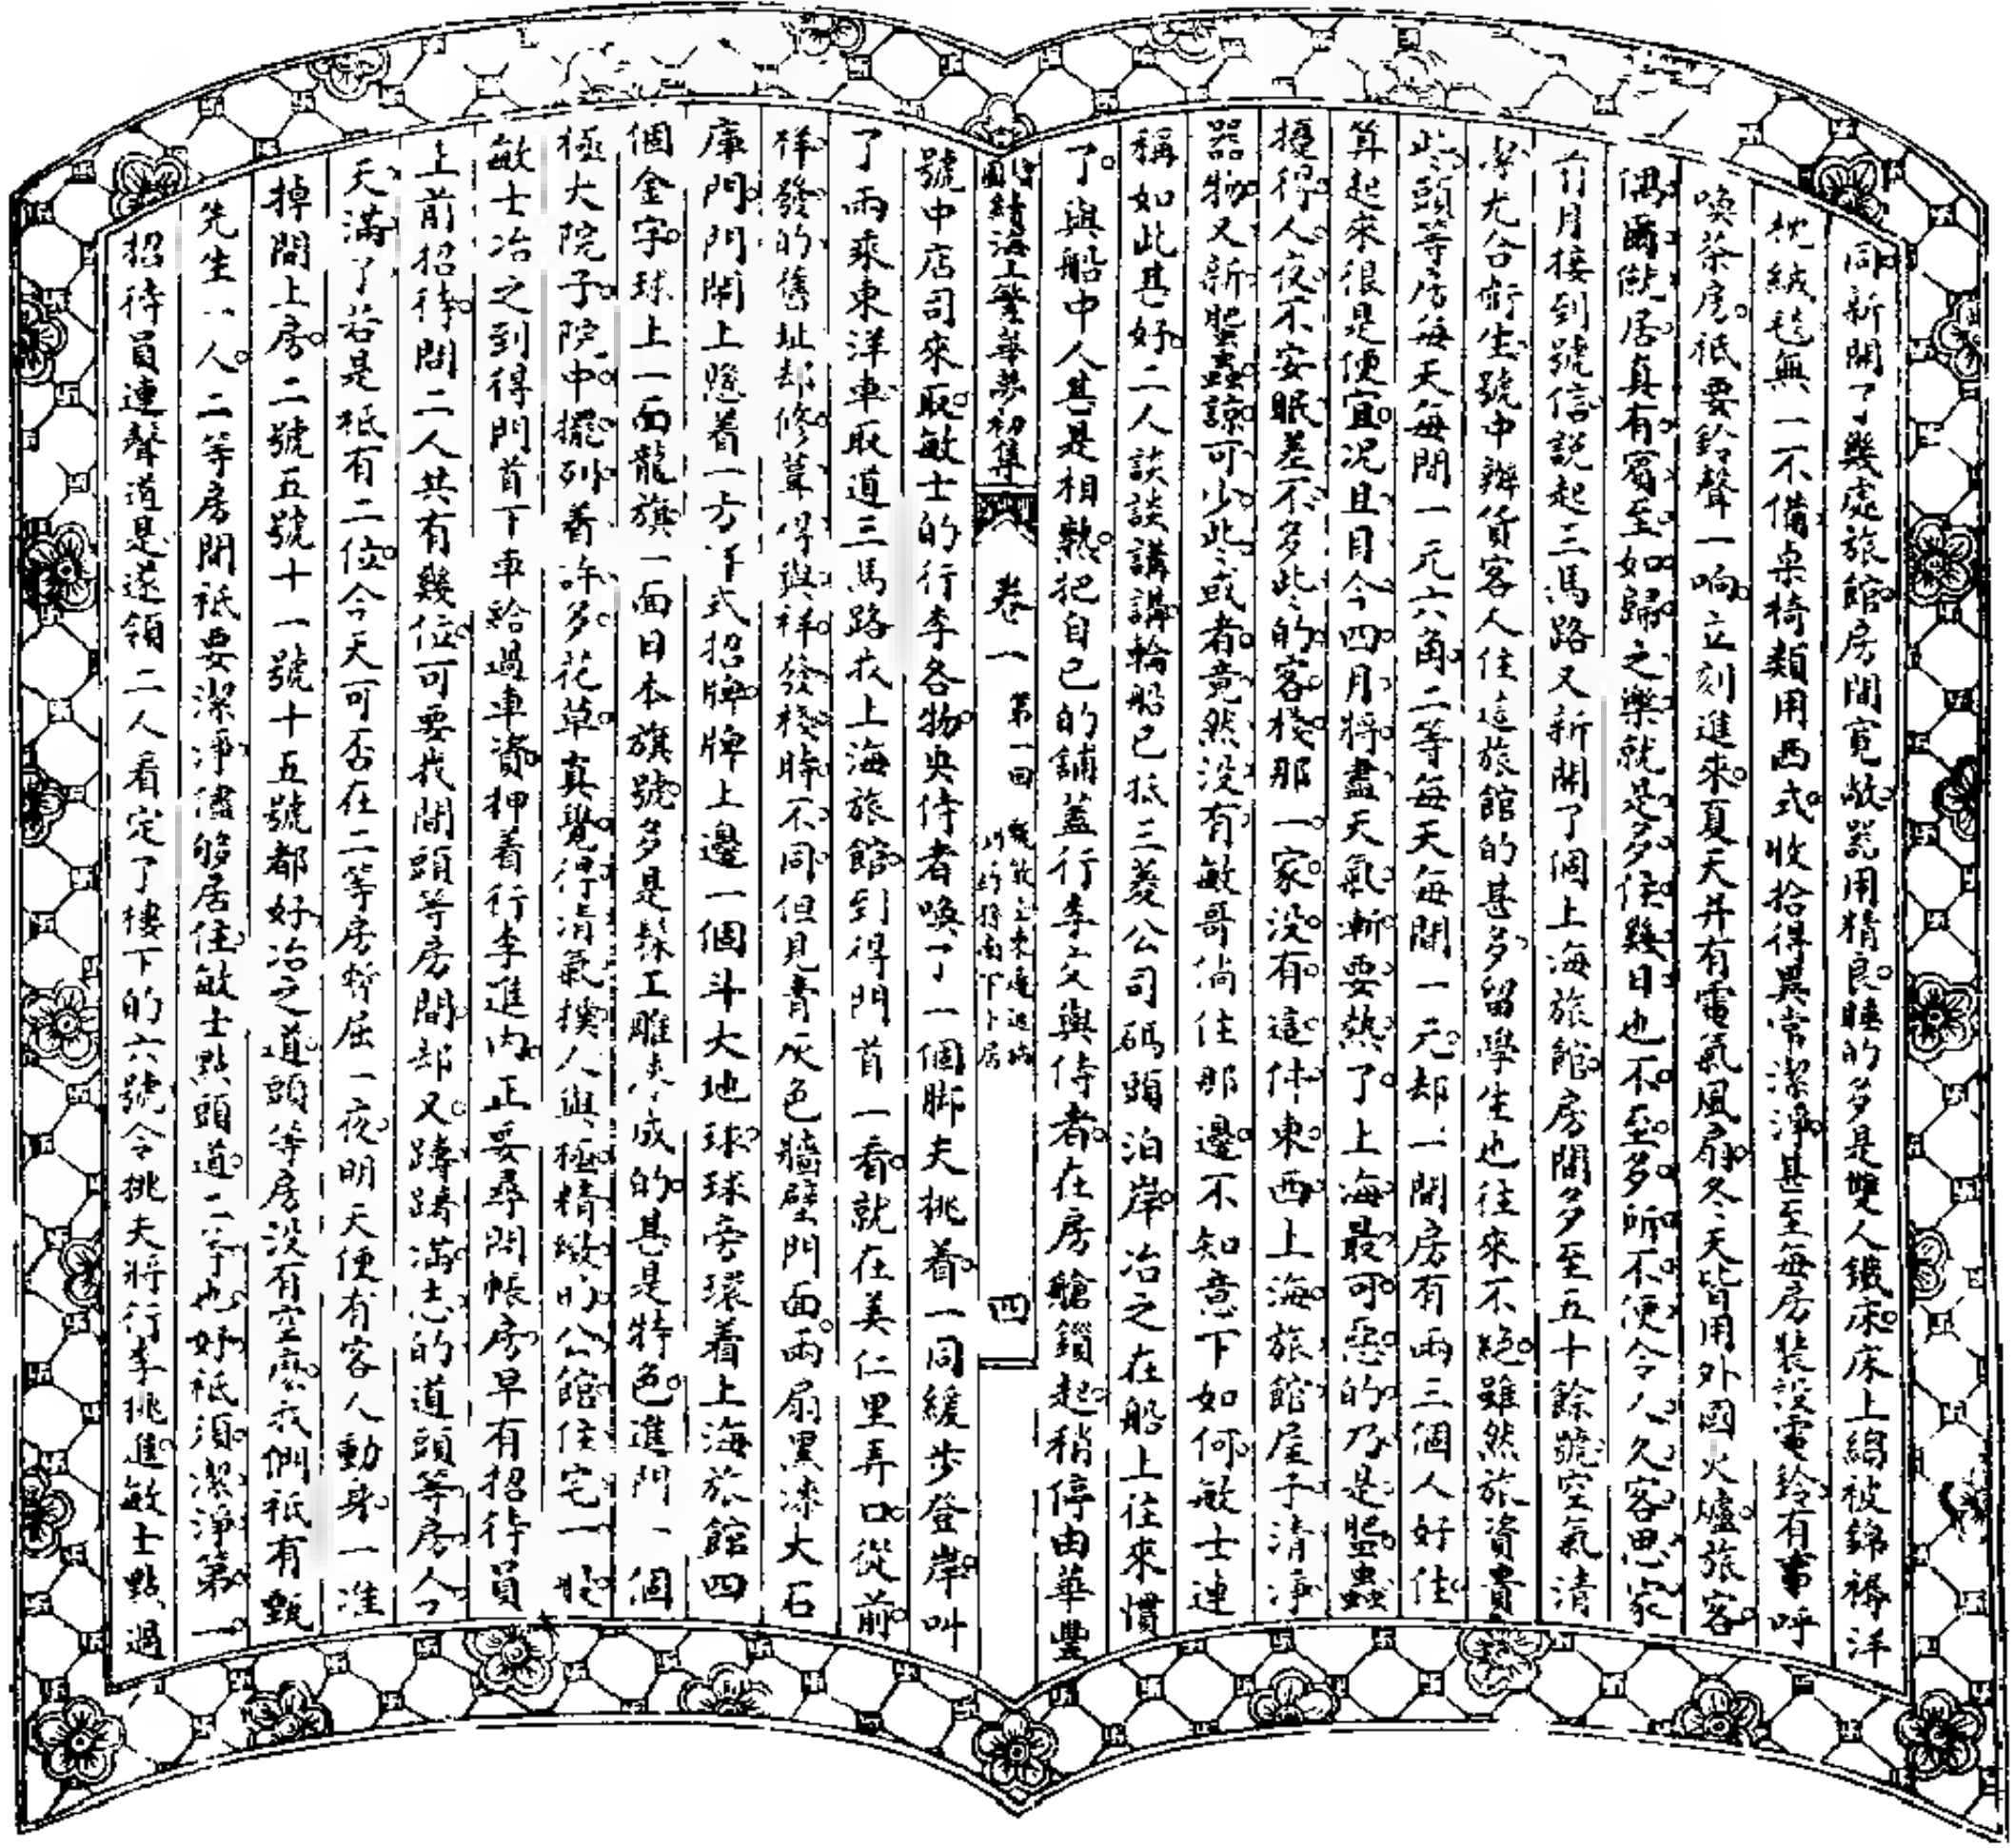 同新開了幾處旅館。房間寬敞。器用精良。睡的多是雙人鐵床。床上綢被錦褥洋
枕絨毯無一不備桌椅類用西式。收拾得異常潔淨。甚至每房裝設電鈴有事呼
喚茶房。祇要鈴聲一响。立刻進來。夏天并有電氣風扇。冬天皆用外國火爐。旅客
偶爾僦居。真有賓至如歸之樂。就是多住幾日也不至多所不便令人久客思家
前月接到號信說起三馬路又新開了個上海旅館。房間多至五十餘號。空氣清
潔尤合衛生。號中辦貨客人住這旅館的甚多。留學生也往來不絕。雖然旅資貴
些。頭等房每天每間一元六角。二等每天每間一元。却一間房有兩三個人好住。
算起來很是便宜。況且目今四月將盡天氣漸要熱了。上海最可惡的乃是蚤蟲
擾得人夜不安眠。差不多些的客棧那一家沒有這件東西。上海旅館屋子清淨
器物又新。蚤蟲諒可少些。或者竟然沒有。敏哥倘住那邊。不知意下如何。敏士連
稱如此甚好。二人談談講講。輪船已抵三菱公司碼頭泊岸。冶之在船上往來慣
了。與船中人甚是相熟。把自己的鋪蓋行李交與侍者。在房艙鎖起。稍停由華豐
繪圖續海上繁華夢初集 卷一 第一回 四
號中店司來取。敏士的行李各物。央侍者喚了一個脚夫挑着。一同緩步登岸。叫
了兩乘東洋車。取道三馬路求上海旅館。到得門首一看。就在美仁里弄口。從前
祥發的舊址。却修葺得與祥發棧時不同。但見青灰色牆壁門面。兩扇黑漆大石
庫門。門闌上懸着一方洋式招牌。牌上邊一個斗大地球。球旁環着上海旅館四
個金字。球上一面龍旗一面日本旗號。多是髹工雕漆成的。甚是特色。進門一個
極大院子。院中擺列着許多花草。真覺得清氣撲人。與極精緻的公館住宅一般
敏士冶之到得門首下車。給過車資。押着行李進內。正要尋問帳房。早有招待員
上前招待。問二人共有幾位。可要我間頭等房間。却又躊躇滿志的道。頭等房今
天滿了。若是祇有二位。今天可否在二等房暫屈一夜。明天便有客人動身。一准
掉間上房。二號五號十一號十五號都好。冶之道。頭等房沒有空麽。我們祇有甄
先生一人。二等房間祇要潔淨。儘夠居住。敏士點頭道。二等也好。祇須潔淨第一。
招待員連聲道是。遂領二人看定了樓下的六號。令挑夫將行李挑進。敏士點過